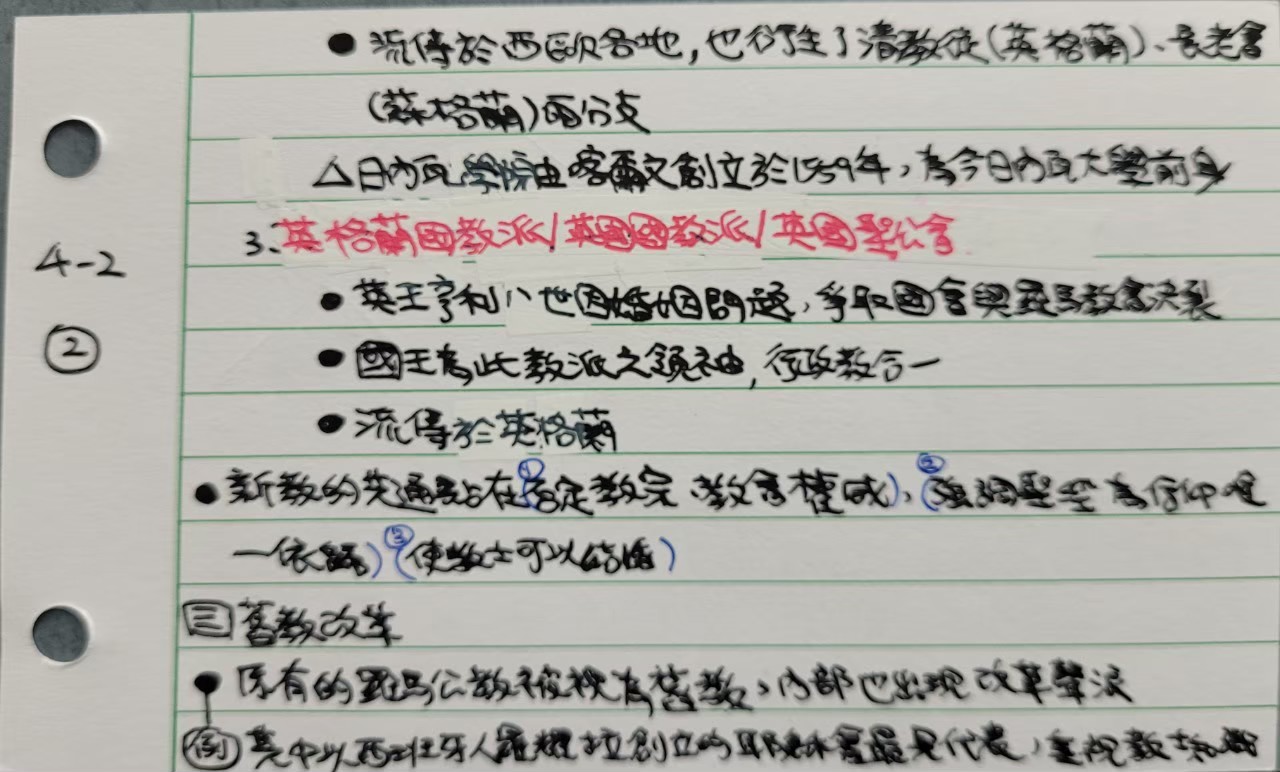 ● 流傳於西歐各地，也衍生了清教徒(英格蘭)、長老會
(蘇格蘭)兩分支
△日內瓦學院由喀爾文創立於1559年，為今日內瓦大學前身
3、英格蘭國教派/英國國教派/英國聖公會
4-2
● 英王亨利八世因婚姻問題，爭取國會與羅馬教會決裂
②
● 國王為此教派之領袖，行政教合一
● 流傳於英格蘭
● 新教的共通點在①否定教宗、教會權威)、②(強調聖經為信仰唯
一依歸)③(使教士可以結婚)
三 舊教改革
● 原有的羅馬公教被視為舊教，內部也出現改革聲浪
例 其中以西班牙人羅耀拉創立的耶穌會最具代表，重視教士